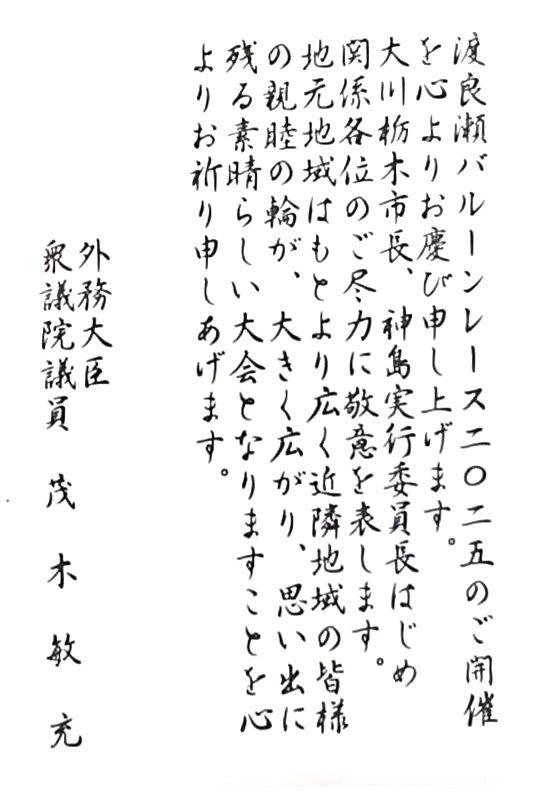 渡良瀬バルーンレース二〇二五のご開催
を心よりお慶び申し上げます。
大川栃木市長、神島実行委員長はじめ
関係各位のご尽力に敬意を表します。
地元地域はもとより広く近隣地域の皆様
の親睦の輪が、大きく広がり、思い出に
残る素晴らしい大会となりますことを心
よりお祈り申しあげます。
外務大臣
衆議院議員 茂木敏充